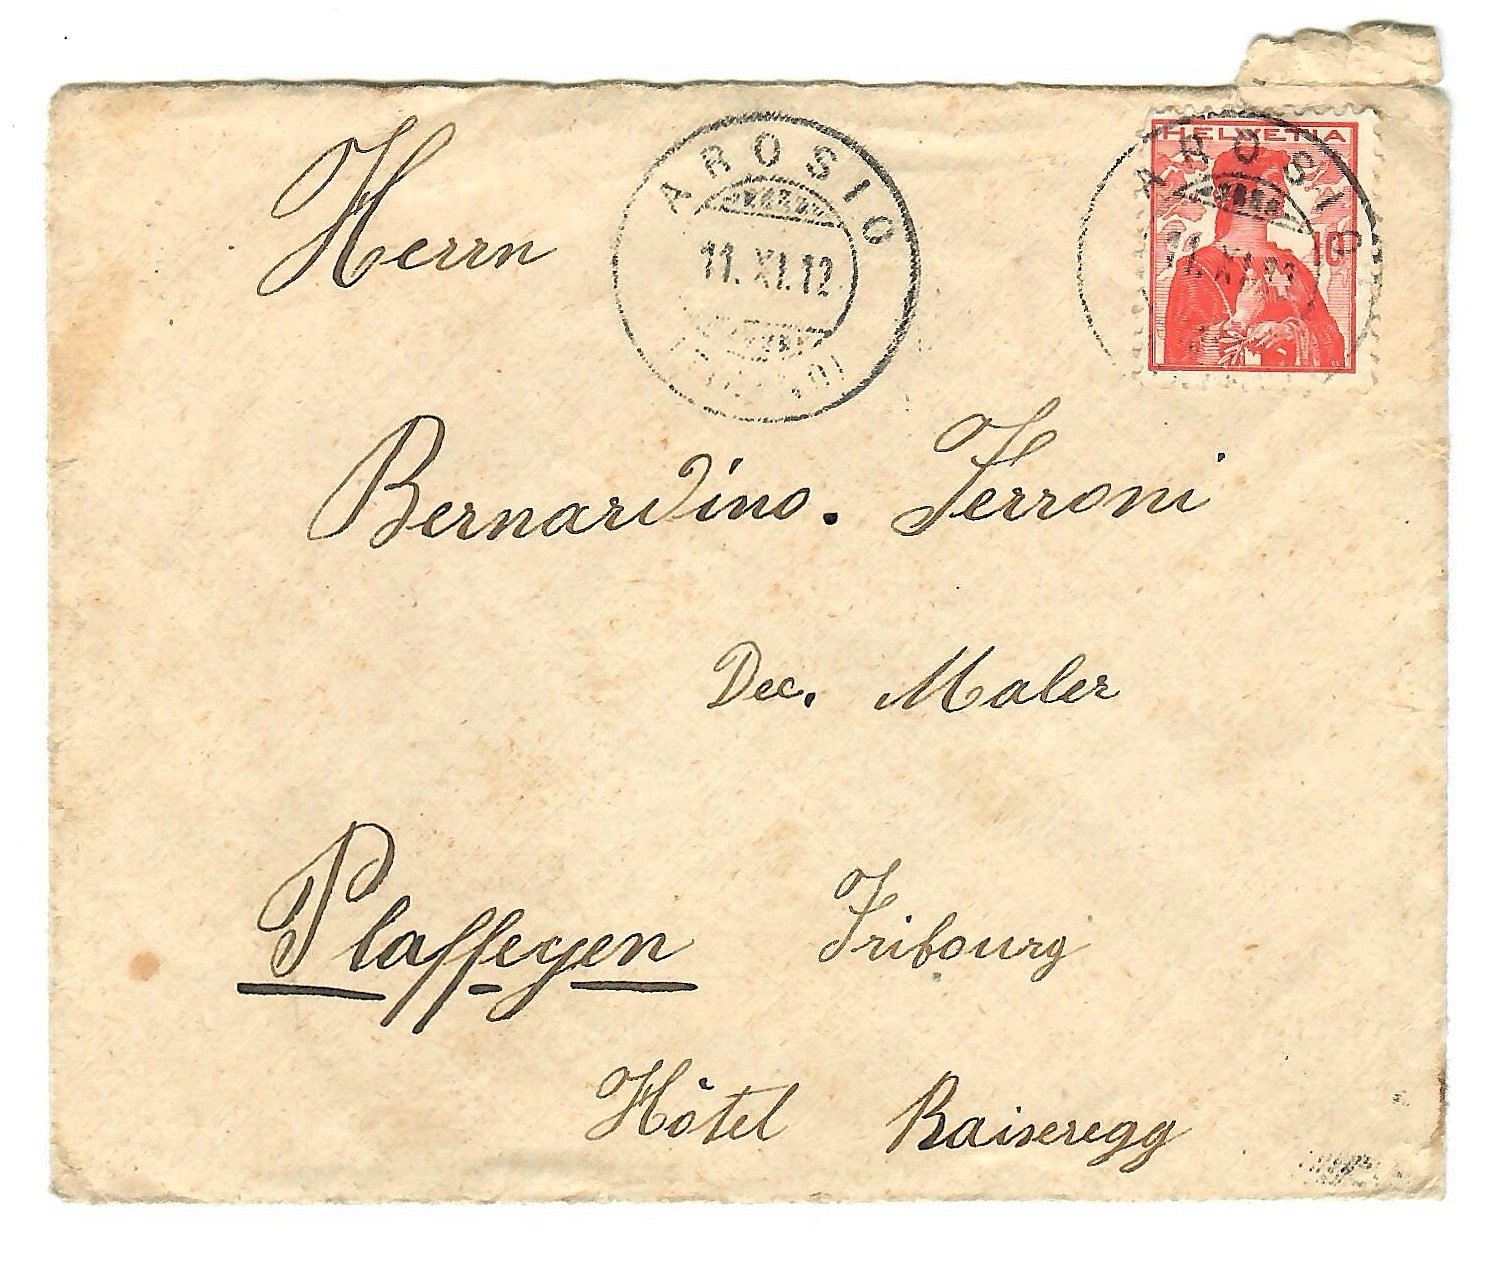 AROSIO
11.XI.12
HELVETIA
10
AROSIO
11.XI.12
Herrn
Bernardino. Ferroni
Dec. Maler
Plaffeyen Fribourg
Hôtel Kaiseregg